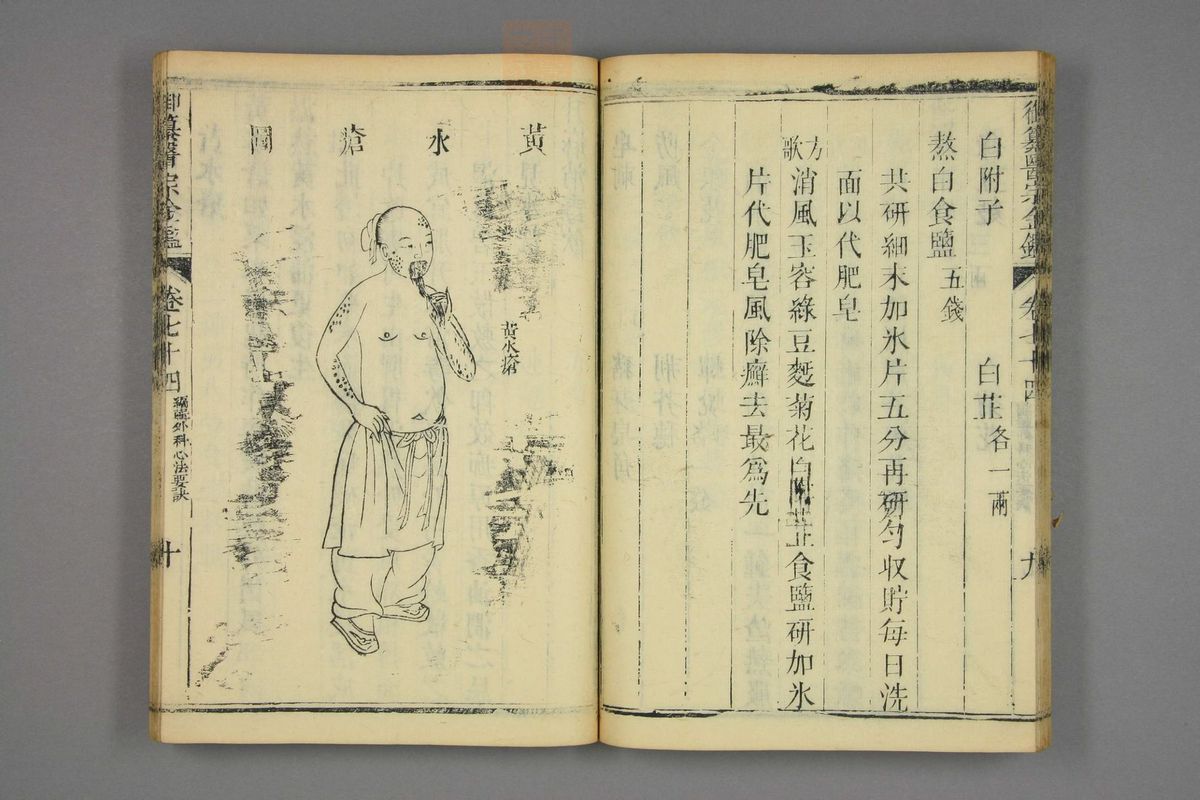 御纂醫宗金鑑 卷七十四 九
白附子 白芷各一兩
熬白食鹽五錢
共研細末加氷片五分再研勻收貯每日洗
面以代肥皂
方歌
消風玉容綠豆麪菊花白 芷食鹽研加氷
片代肥皂風除癬去最爲先
黃水瘡圖
黃水瘡
御纂醫宗金鑑 卷七十四 編輯外科心法要訣 十